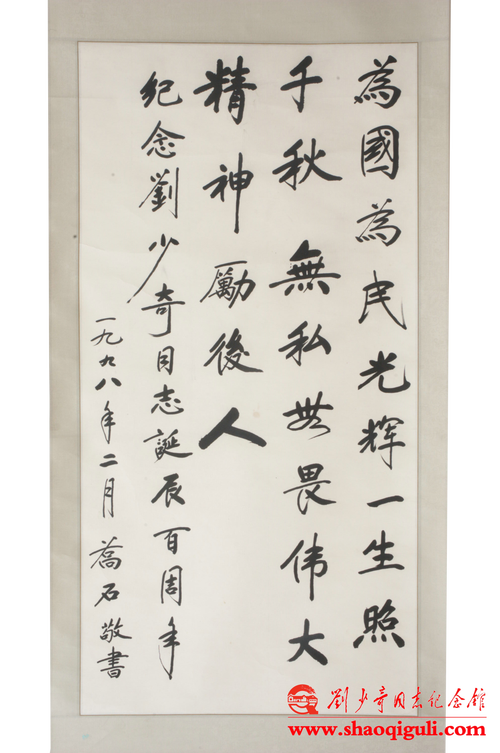 為國為民光辉一生照
千秋 無私無畏伟大
精神勵後人
纪念劉少奇同志誕辰百周年
一九九八年二月 喬石敬書
劉少奇同志纪念馆
www.shaoqiguli.com